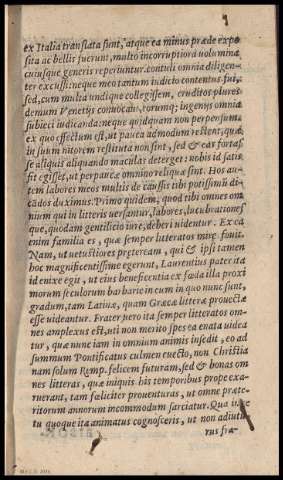 ex Italia translata sunt, atque ea minus prædæ expo
sita ac bellis fuerunt, multo incorruptiora uolumina
cuiusque generis reperiuntur. contuli omnia diligen-
ter excussi: neque meo tantum iudicio contentus fui,
sed, cum multa undique collegissem, eruditos plures
demum Venetijs conuocaui, eorumq; ingenijs omnia
subieci iudicanda: neque quidquam non perpensum.
ex quo effectum est, ut pauca admodum restent, quæ
in suum nitorem restituta non sint, sed & eas fortas
se aliquis aliquando maculas deterget: nobis id satis
fit egisse, ut perpauca omnino reliqua sint. Hos au-
tem labores meos multis de caussis tibi potissimū di-
cādos duximus. Primo quidem, quod tibi omnes om
nium qui in litteris uersantur, labores, lucubrationes
que, quodam gentilicio iure, deberi uidentur. Ex ea
enim familia es, quæ semper litteratos mire fouit.
Nam, ut uetustiores præteream, qui & ipsi tamen
hoc magnificentissime egerunt, Laurentius pater tuus
id enixe egit, ut eius beneficentia ex fœda illa proxi
morum seculorum barbarie in eum in quo nunc sunt,
gradum, tam Latinæ, quam Græcæ litteræ prouectæ
esse uideantur. Frater uero ita semper litteratos om-
nes amplexus est, uti non merito spes ea enata uidea
tur, quæ nunc iam in omnium animis insedit, eo ad
summum Pontificatus culmen euecto, non Christia
nam solum Remp. felicem futuram, sed & bonas om
nes litteras, quæ iniquis his temporibus prope exa-
ruerant, tam feliciter prouenturas, ut omne præte-
ritorum annorum incommodum sarciatur. Qua in re
tu quoque ita animatus cognosceris, ut non adiutu-
rus fra-